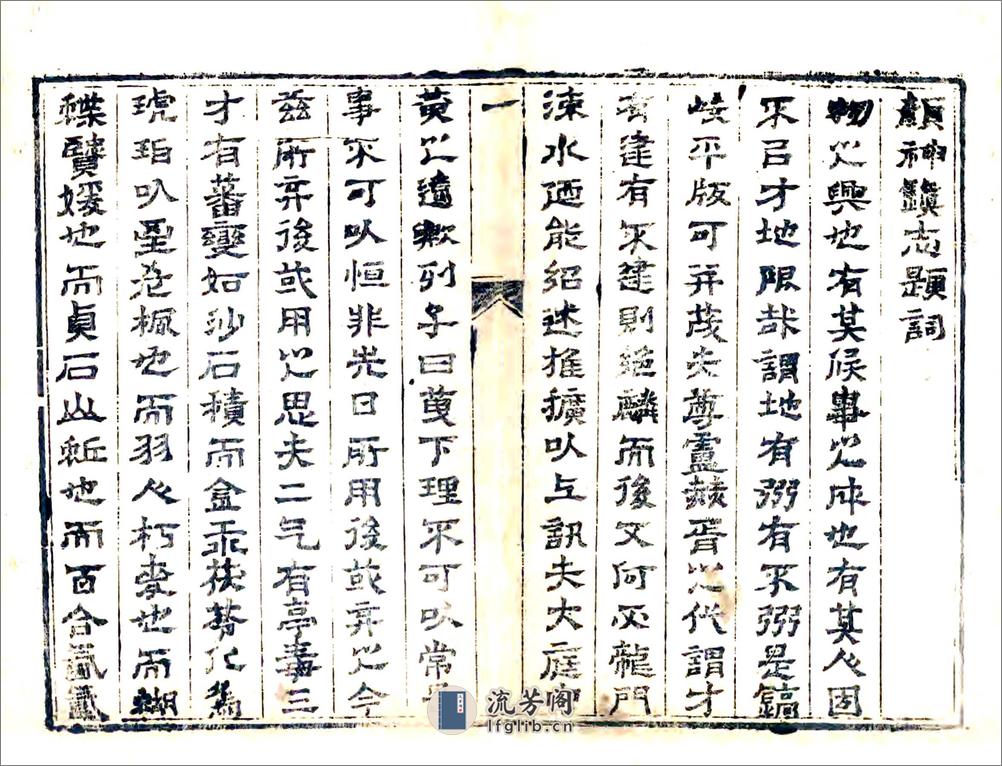 顏神鎮志題詞
物之興也有其候事之成也有其人固
不㠯才地限哉謂地有弼有不弼是鎬
岐平版可并茂夫尊盧赫胥之代謂才
有逮有不逮則絕麟而後又何必龍門
涑水迺能紹述推擴以上訊夫大庭
一
黄之遺歟列子曰天下理不可以常
事不可以恒非先日所用後或弃之今
茲所弃後或用之思夫二气有亭毒三
才有蕃變如沙石積而金乖
琥珀以星也楓也而羽人朽麥也而蝴
蝶賢媛也而貞石山蚯也而百合
流芳阁
lfglib.cn